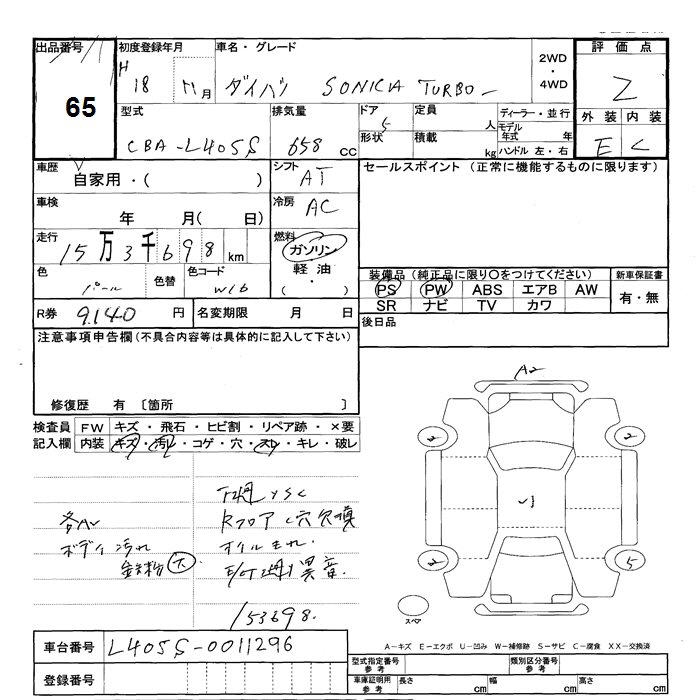 出品番号 初度登録年月 車名・グレード 2WD・4WD 評価点
65
H 18 月 ダイハツ SONICA TURBO 2
型式 排気量 ドア 定員 ディーラー・並行 外装 内装
CBA-L405S 658 CC 5 人 モデル年式 年 E C
形状 積載 kg ハンドル 左・右
車歴 自家用・( ) シフト AT セールスポイント (正常に機能するものに限ります)
車検 年 月( 日) 冷房 AC
走行 15万3千698km 燃料 ガソリン
軽油
・
( )
色 パール 色替 色コード W16
装備品 (純正品に限り○をつけてください) 新車保証書
PS PW ABS エアB AW 有・無
SR ナビ TV カワ
R券 9140 円 名変期限 月 日 後日品
注意事項申告欄(不具合内容等は具体的に記入して下さい)
修復歴 有 〔箇所 〕
検査員 FW キズ・飛石・ヒビ割・リペア跡・×要
記入欄 内装 キズ・汚レ・コゲ・穴・スレ・キレ・破レ
各AU
ボディ汚れ
鉄粉 大
下廻りSC
RフロアC穴欠損
オイルもれ
E/G廻り異音.
153698.
A2
2 2
2 5
スペア
A-キズ E-エクボ U-凹み W-補修跡 S-サビ C-腐食 XX-交換済
車台番号 L405S-0011296
登録番号
型式指定番号 参考 類別区分番号 参考
車庫証明用 参考 長さ cm 幅 cm 高さ cm